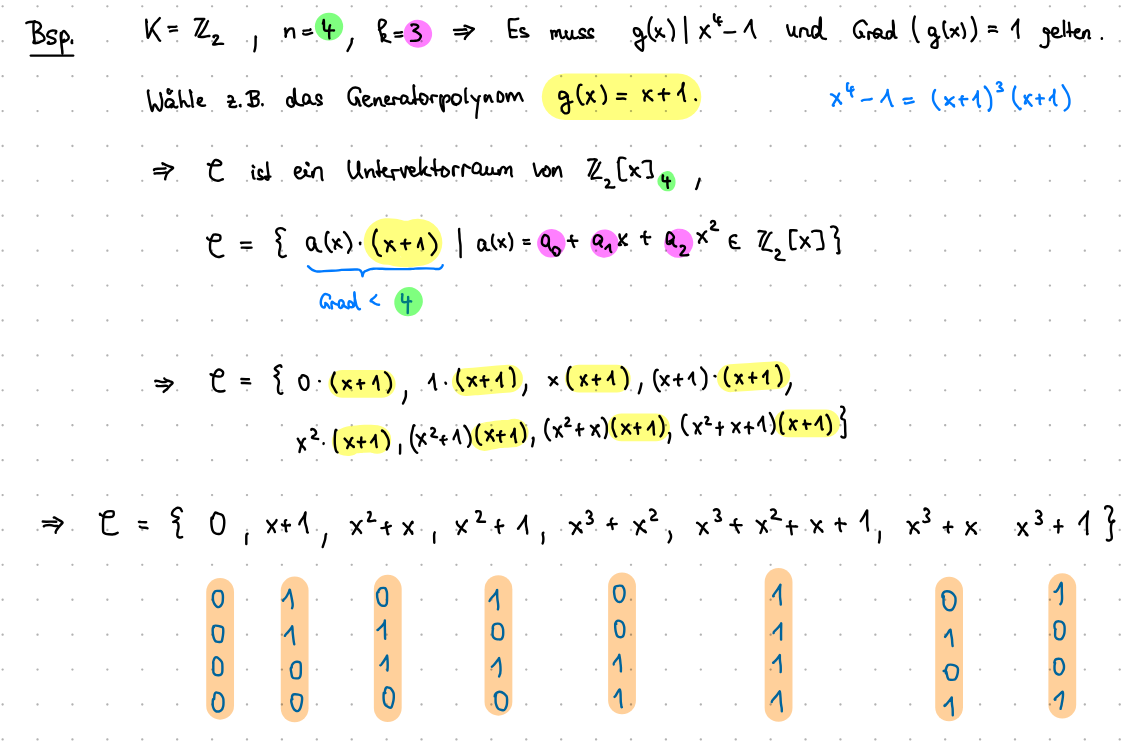 Bsp. K = ℤ₂ , n = 4 , k = 3 ⇒ Es muss g(x) | x⁴ - 1 und Grad (g(x)) = 1 gelten.
Wähle z.B. das Generatorpolynom g(x) = x+1. x⁴ - 1 = (x+1)³ (x+1)
⇒ C ist ein Untervektorraum von ℤ₂[x]₄ ,
C = { a(x) · (x+1) | a(x) = a₀ + a₁x + a₂x² ∈ ℤ₂[x] }
Grad < 4
⇒ C = { 0 · (x+1) , 1 · (x+1) , x (x+1) , (x+1) · (x+1) ,
x² · (x+1) , (x²+1)(x+1) , (x²+x)(x+1) , (x²+x+1)(x+1) }
⇒ C = { 0 , x+1 , x²+x , x²+1 , x³+x² , x³+x²+x+1 , x³+x x³+1 }
0 1 0 1 0 1 0 1
0 1 1 0 0 1 1 0
0 0 1 1 1 1 0 0
0 0 0 0 1 1 1 1